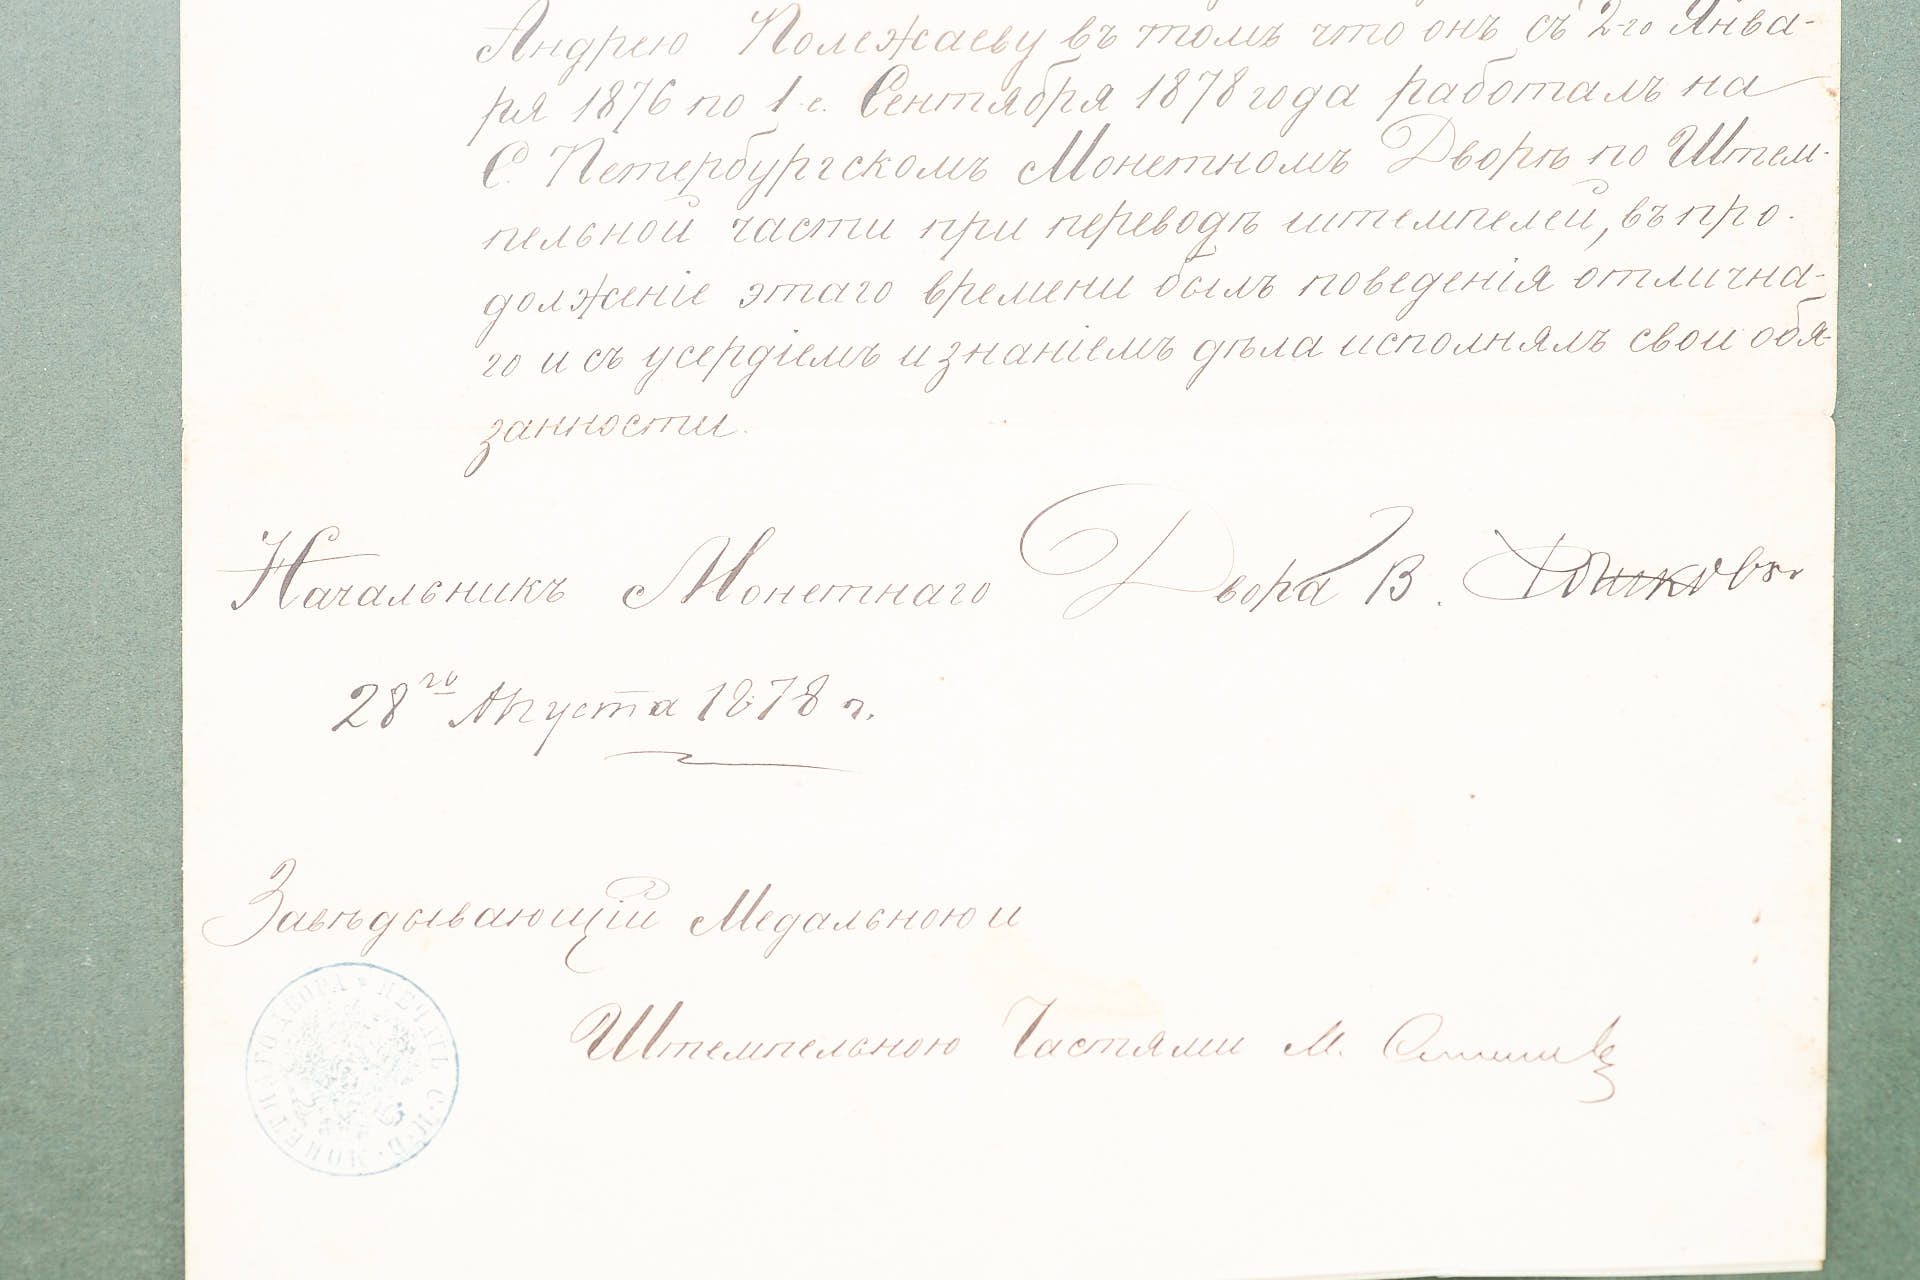 Андрею Полежаеву въ томъ что онъ съ 2-го Янва-
ря 1876 по 1-е. Сентября 1878 года работалъ на
С. Петербургскомъ Монетномъ Дворѣ по Штем-
пельной части при переводѣ штемпелей, въ про-
долженіе этаго времени былъ поведенія отлична-
го и съ усердіемъ и знаніемъ дѣла исполнялъ свои обя-
занности.
Начальникъ Монетнаго Двора В.
28го Августа 1878 г.
Завѣдывающій Медальною и
Штемпельною Частями М.
ПЕЧАТЬ С.П.Б. МОНЕТНАГО ДВОРА